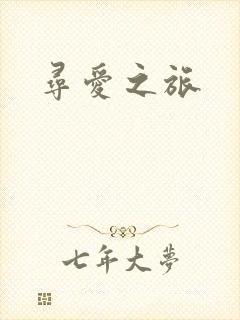 尋愛之旅
七年大夢